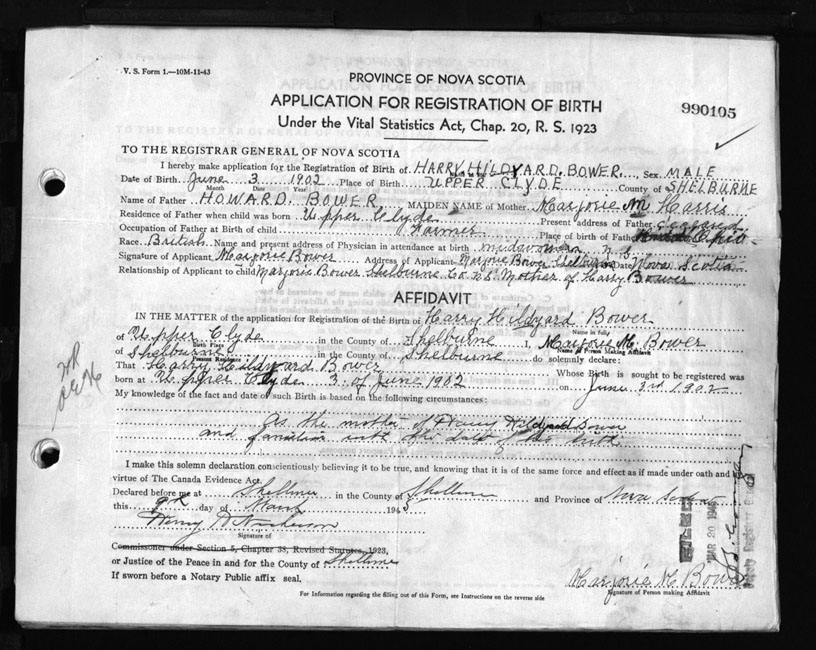 V. S. Form 1.—10M-11-43
PROVINCE OF NOVA SCOTIA
APPLICATION FOR REGISTRATION OF BIRTH
990105
Under the Vital Statistics Act, Chap. 20, R. S. 1923
TO THE REGISTRAR GENERAL OF NOVA SCOTIA
I hereby make application for the Registration of Birth of HARRY HILDYARD. BOWER. Sex MALE
Date of Birth June 3 1902 Place of Birth UPPER CLYDE County of SHELBURNE
Month Date Year
Name of Father HOWARD. BOWER MAIDEN NAME of Mother Marjorie M Harris
Residence of Father when child was born Upper Clyde Present address of Father deceased
Occupation of Father at Birth of child Farmer Place of Birth of Father Ohio
Race British Name and present address of Physician in attendance at birth midwoman N S
Signature of Applicant Marjorie Bower Address of Applicant Marjorie Bower Shelburne Date Nova Scotia
Relationship of Applicant to child Marjorie Bower Shelburne Co. N S Mother of Harry Bower
AFFIDAVIT
IN THE MATTER of the application for Registration of the Birth of Harry Hildyard Bower
Name in fully
of Upper Clyde in the County of Shelburne I, Marjorie M. Bower
Birth Place Name of Person Making Affidavit
of Shelburne in the County of Shelburne do solemnly declare:
Present Residence
That Harry Hildyard Bower Whose Birth is sought to be registered was
born at Upper Clyde 3 of June 1902 on June 3rd 1902
My knowledge of the fact and date of such Birth is based on the following circumstances:
As the mother of Harry Hildyard Bower
and familiar with the date of his birth
I make this solemn declaration conscientiously believing it to be true, and knowing that it is of the same force and effect as if made under oath and by
virtue of The Canada Evidence Act.
Declared before me at Shelburne in the County of Shelburne and Province of Nova Scotia
this day of March 1945
Signature of
Commissioner under Section 5, Chapter 38, Revised Statutes, 1923,
or Justice of the Peace in and for the County of Shelburne
If sworn before a Notary Public affix seal.
MAR 20 194
Marjorie M Bower
Signature of Person making Affidavit
For Information regarding the filling out of this Form, see Instructions on the reverse side